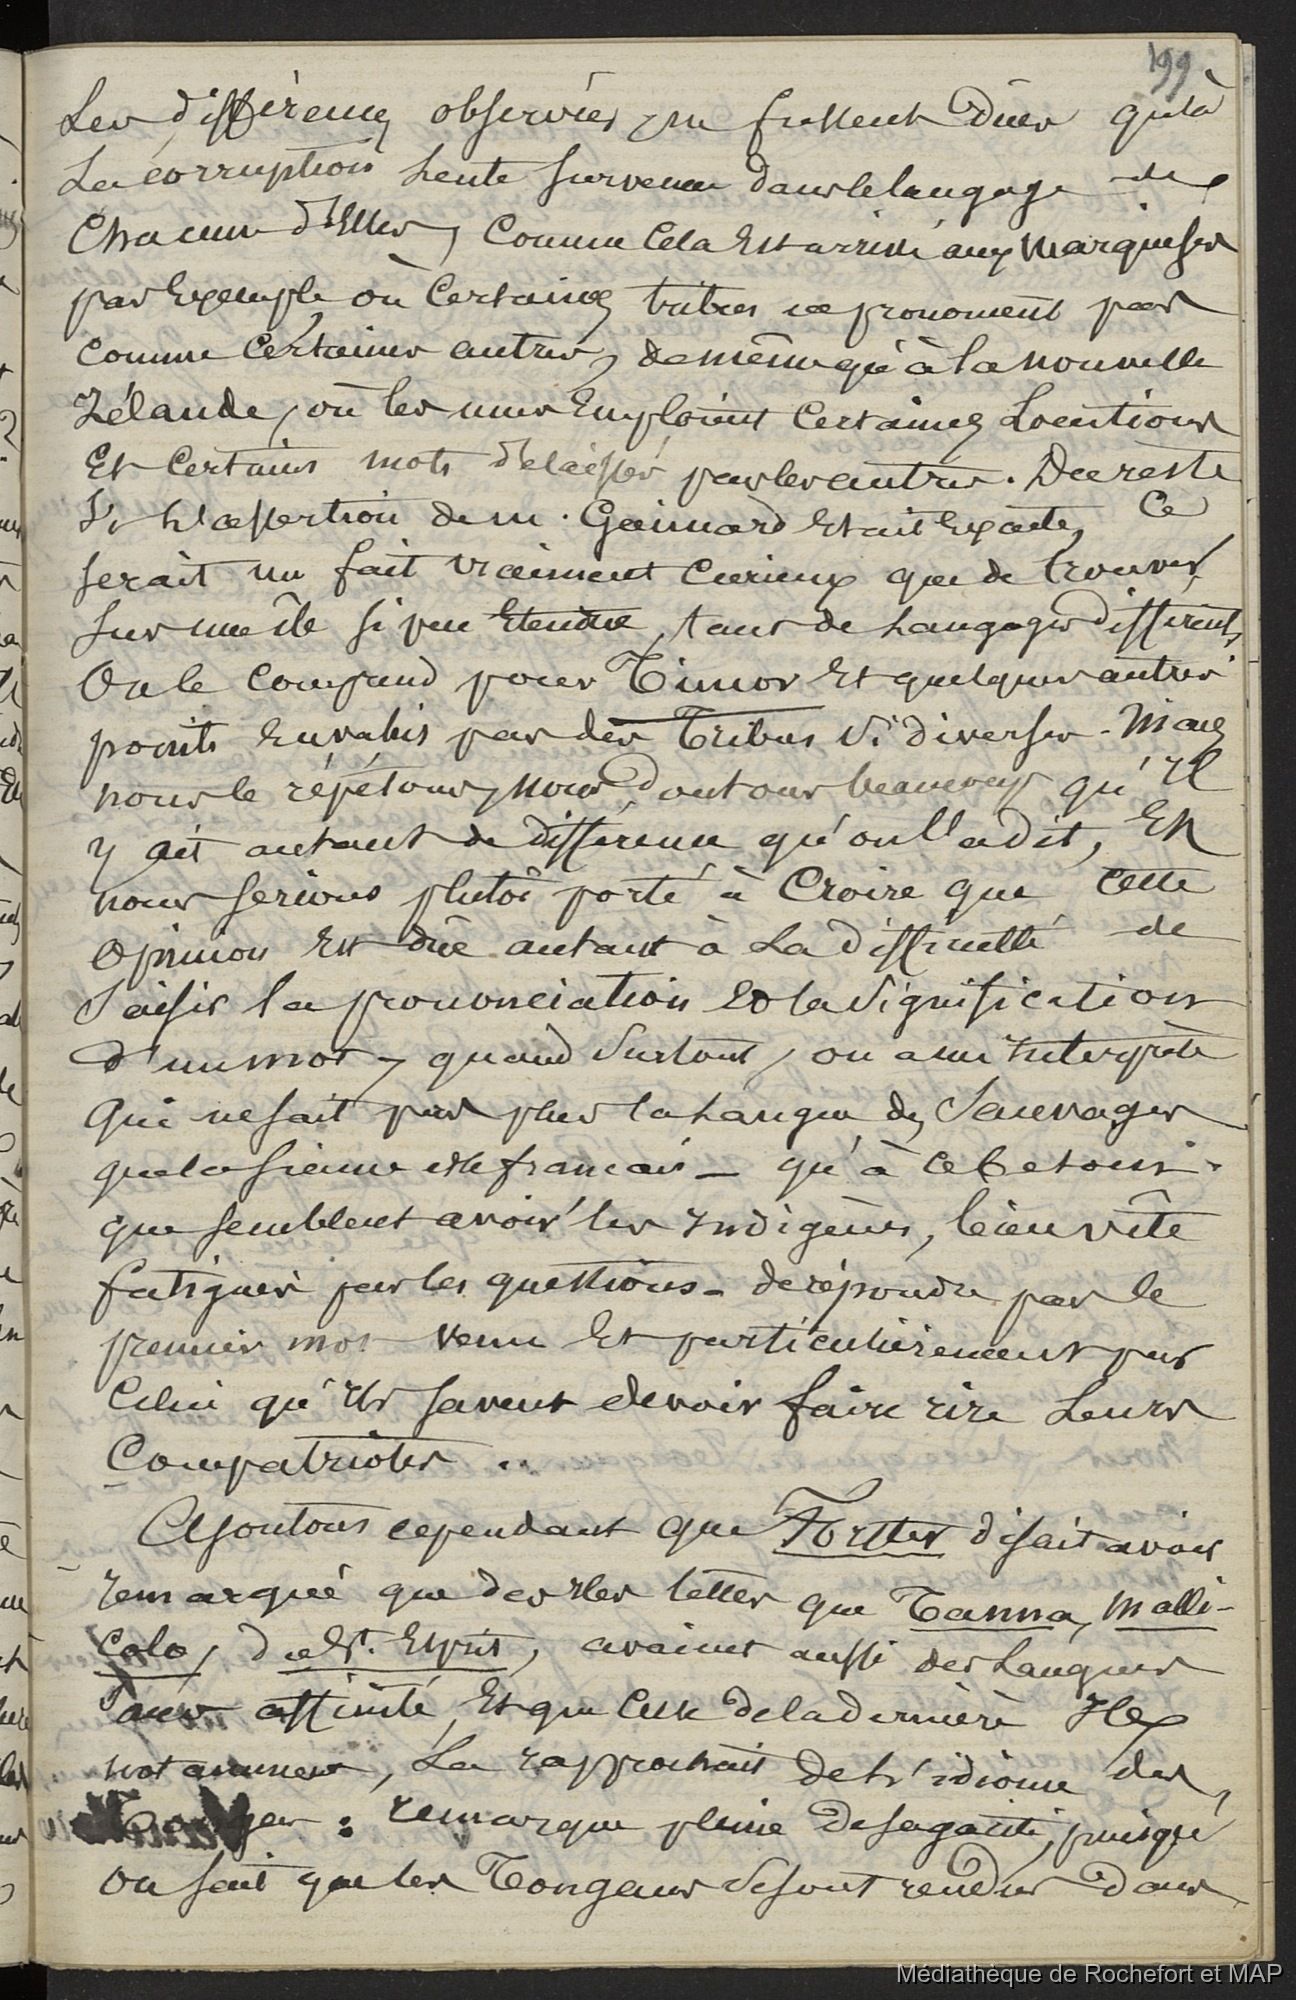 199
Les différences observées, ne fussent dûes qu'à
La corruption lente survenue dans le langage de
Chacune d'Elles, Comme Cela Est arrivé aux Marquises
par Exemple, où Certaines tribus ne prononcent pas
comme Certaines autres, de même qu'à la nouvelle
Zélande, où les unes Emploient Certaines Locutions
Et Certains mots délaissés par les autres. Du reste
Si l'assertion de m. Gaimard Etait Exacte, Ce
serait un fait vraiment Curieux que de trouver,
sur une île si peu Etendue, tant de Langages différents,
On le comprend pour Timor Et quelques autres
points Envahis par des Tribus Si diverses. Mais
nous le répétons, nous doutons beaucoup qu'Il
y ait autant de différence qu'on l'a dit, Et
nous serions plutôt porté à Croire que Cette
Opinion Est dûe autant à La difficulté de
Saisir la prononciation Et la Signification
d'un mot, quand Surtout, on a un Interprète
Qui ne sait pas plus la Langue des Sauvages
que la sienne et le français — qu'à ce besoin.
que semblent avoir les Indigènes, bien vîte
fatigués par les questions — de répondre par le
premier mot venu Et particulièrement par
Celui qu'Ils savent devoir faire rire Leurs
Compatriotes ..
Ajoutons cependant que Forster disait avoir
remarqué que des Iles telles que Tanna, Malli-
Colo, du St. Esprit, avaient aussi des Langues
Sans affinité, Et que Celle de la dernière Ile
notamment, La rapprochait de L'idiome des,
Tongas : remarque pleine de sagacité, puisqu'
On sait que les Tongans Se sont rendus dans
Médiathèque de Rochefort et MAP